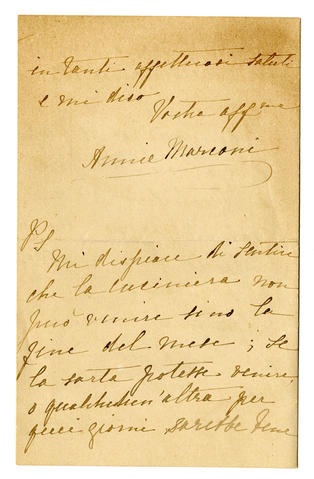 in tanti affettuosi saluti
e mi dico
Vostra aff ma
Annie Marconi
PS
Mi dispiace di sentire
che la cuciniera non
può venire sino la
fine del mese ; se
la sarta potesse venire,
o qualchedun'altra per
quei giorni, sarebbe bene